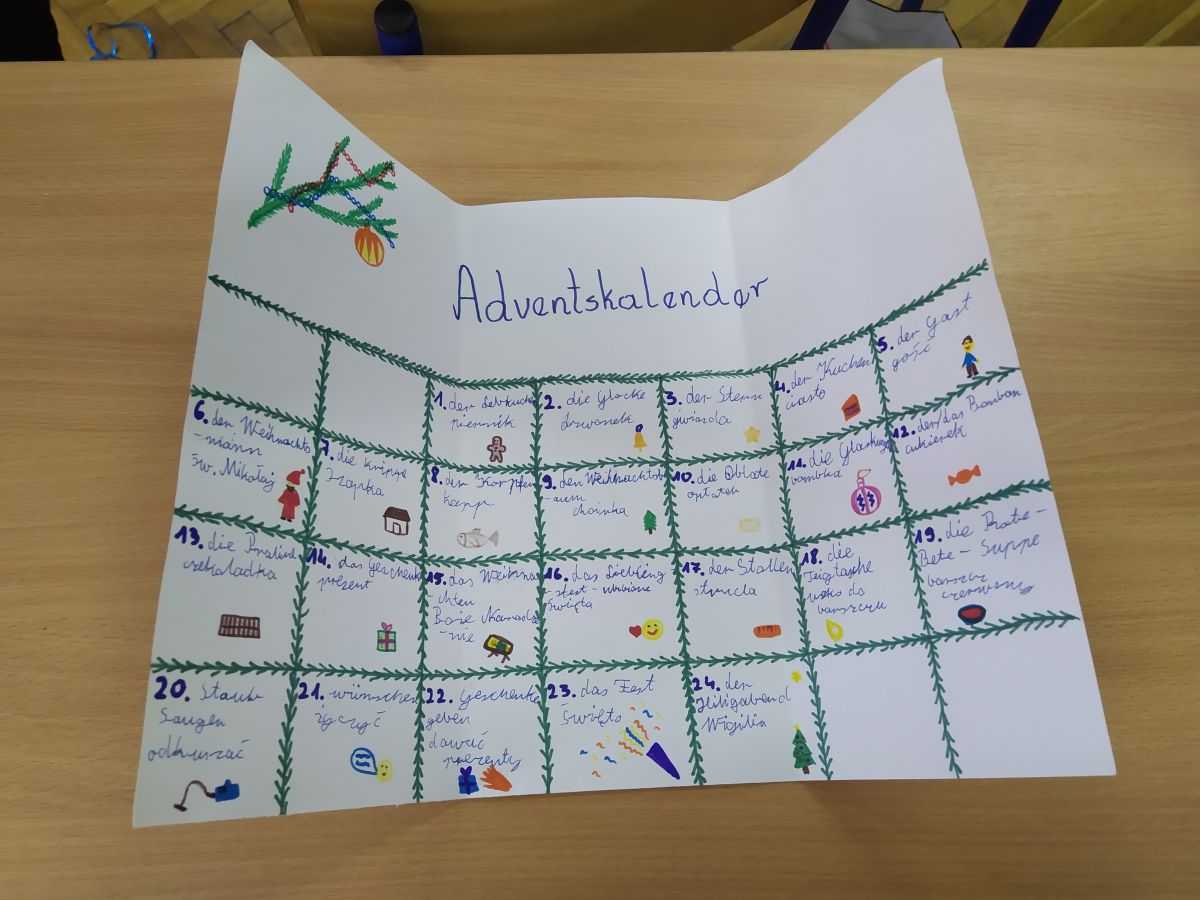 Adventskalender
1. der Lebkuchen
piernik
2. die Glocke
dzwonek
3. der Stern
gwiazda
4. der Kuchen
ciasto
5. der Gast
gość
6. der Weihnachts
-mann
św. Mikołaj
7. die Krippe
8. der Karpfen
karp
9. der Weihnachtsb
-aum
choinka
10. die Oblate
opłatek
11. die Glaskugel
bombka
12. der/das Bonbon
cukierek
13. die Praline
czekoladka
14. das Geschenk
prezent
15. das Weihna
-chten
Boże Narodze
-nie
16. das Liebling
-sfest - ulubione
święta
17. der Stollen
strucla
18. die
Teigtasche
uszko do
barszczu
19. die Rote-
Bete-Suppe
barszcz
czerwony
20. Staub
Saugen
odkurzać
21. wünschen
życzyć
22. Geschenke
geben
dawać
prezenty
23. das Fest
Święto
24. der
Heiligabend
Wigilia